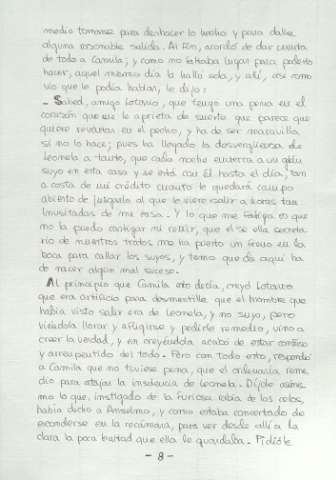 medio tomaría para deshacer lo hecho y para dalle
alguna razonable salida. Al fin, acordó de dar cuenta
de todo a Camila; y como no faltaba lugar para poderlo
hacer, aquel mismo día la halló sola, y allí, así como
vio que le podía hablar, le dijo:
- Sabed, amigo Lotario, que tengo una pena en el
corazón que me le aprieta de suerte que parece que
quiere reventar en el pecho, y ha de ser maravilla
si no lo hace; pues ha llegado la desvergüenza de
Leonela a tanto, que cada noche encierra a un galán
suyo en esta casa y se está con él hasta el día, tan
a costa de mi crédito cuanto le quedará campo
abierto de juzgarlo al que le viere salir a horas tan
inusitadas de mi casa. Y lo que me fatiga es que
no la puedo castigar ni reñir, que el ser ella secreta-
rio de nuestros tratos me ha puesto un freno en la
boca para callar los suyos, y temo que de aquí ha
de nacer algún mal suceso.
Al principio que Camila esto decía, creyó Lotario
que era artificio para desmentille que el hombre que
había visto salir era de Leonela, y no suyo, pero
viéndola llorar y afligirse y pedirle remedio, vino a
creer la verdad, y en creyéndola acabó de estar confuso
y arrepentido del todo. Pero con todo esto, respondió
a Camila que no tuviese pena, que él ordenaría reme-
dio para atajar la insolencia de Leonela. Díjole asimis-
mo lo que, instigado de la furiosa rabia de los celos,
había dicho a Anselmo, y como estaba concertado de
esconderse en la recámara, para ver desde allí a la
clara la poca lealtad que ella le guardaba. Pidióle
- 8 -